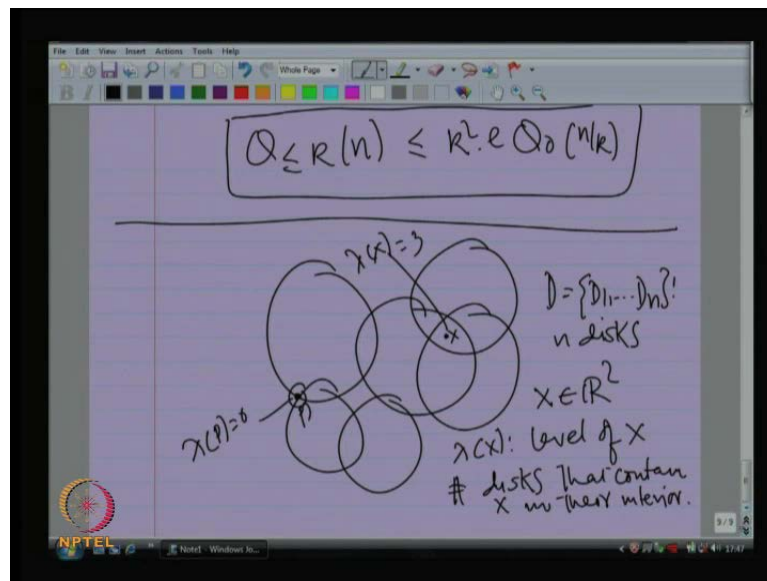 File Edit View Insert Actions Tools Help
Whole Page
Q≤k(n) ≤ k². e Q0 (n/k)
λ(x)=3
D={D1,...Dn}:
n disks
x∈ℝ²
λ(p)=0
p
x
λ(x): level of x
# disks that contain
x in their interior.
9/9
NPTEL
Note1 - Windows Jo...
17:47